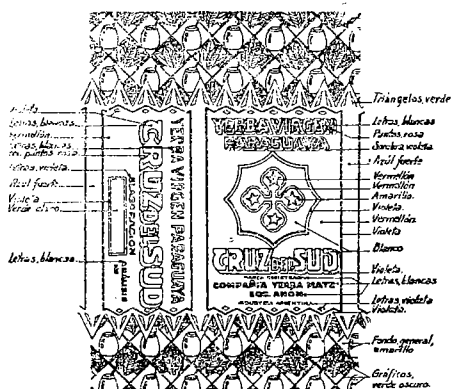 Letras, blancas
Vermellón
Letras, blancas
con puntos rosa
Letras, violeta
Azul fuerte
Violeta
Verde claro
Letras, blancas
CRUZ DEL SUD
YERBA VIRGEN PARAGUAYA
ELABORACIÓN
YERBA VIRGEN
PARAGUAYA
CRUZ DEL SUD
MARCA REGISTRADA
COMPAÑÍA YERBA MATE
SOC. ANÓN.
INDUSTRIA ARGENTINA
Triángelos, verde
Letras, blancas
Puntos, rosa
Sombra violeta
Azúl fuerte
Vermellón
Vermellón
Amarillo
Violeta
Vermellón
Violeta
Blanco
Violeta
Letras, blancas
Letras, violeta
Violeta
Fondo general,
amarillo
Gráficos,
verde oscuro